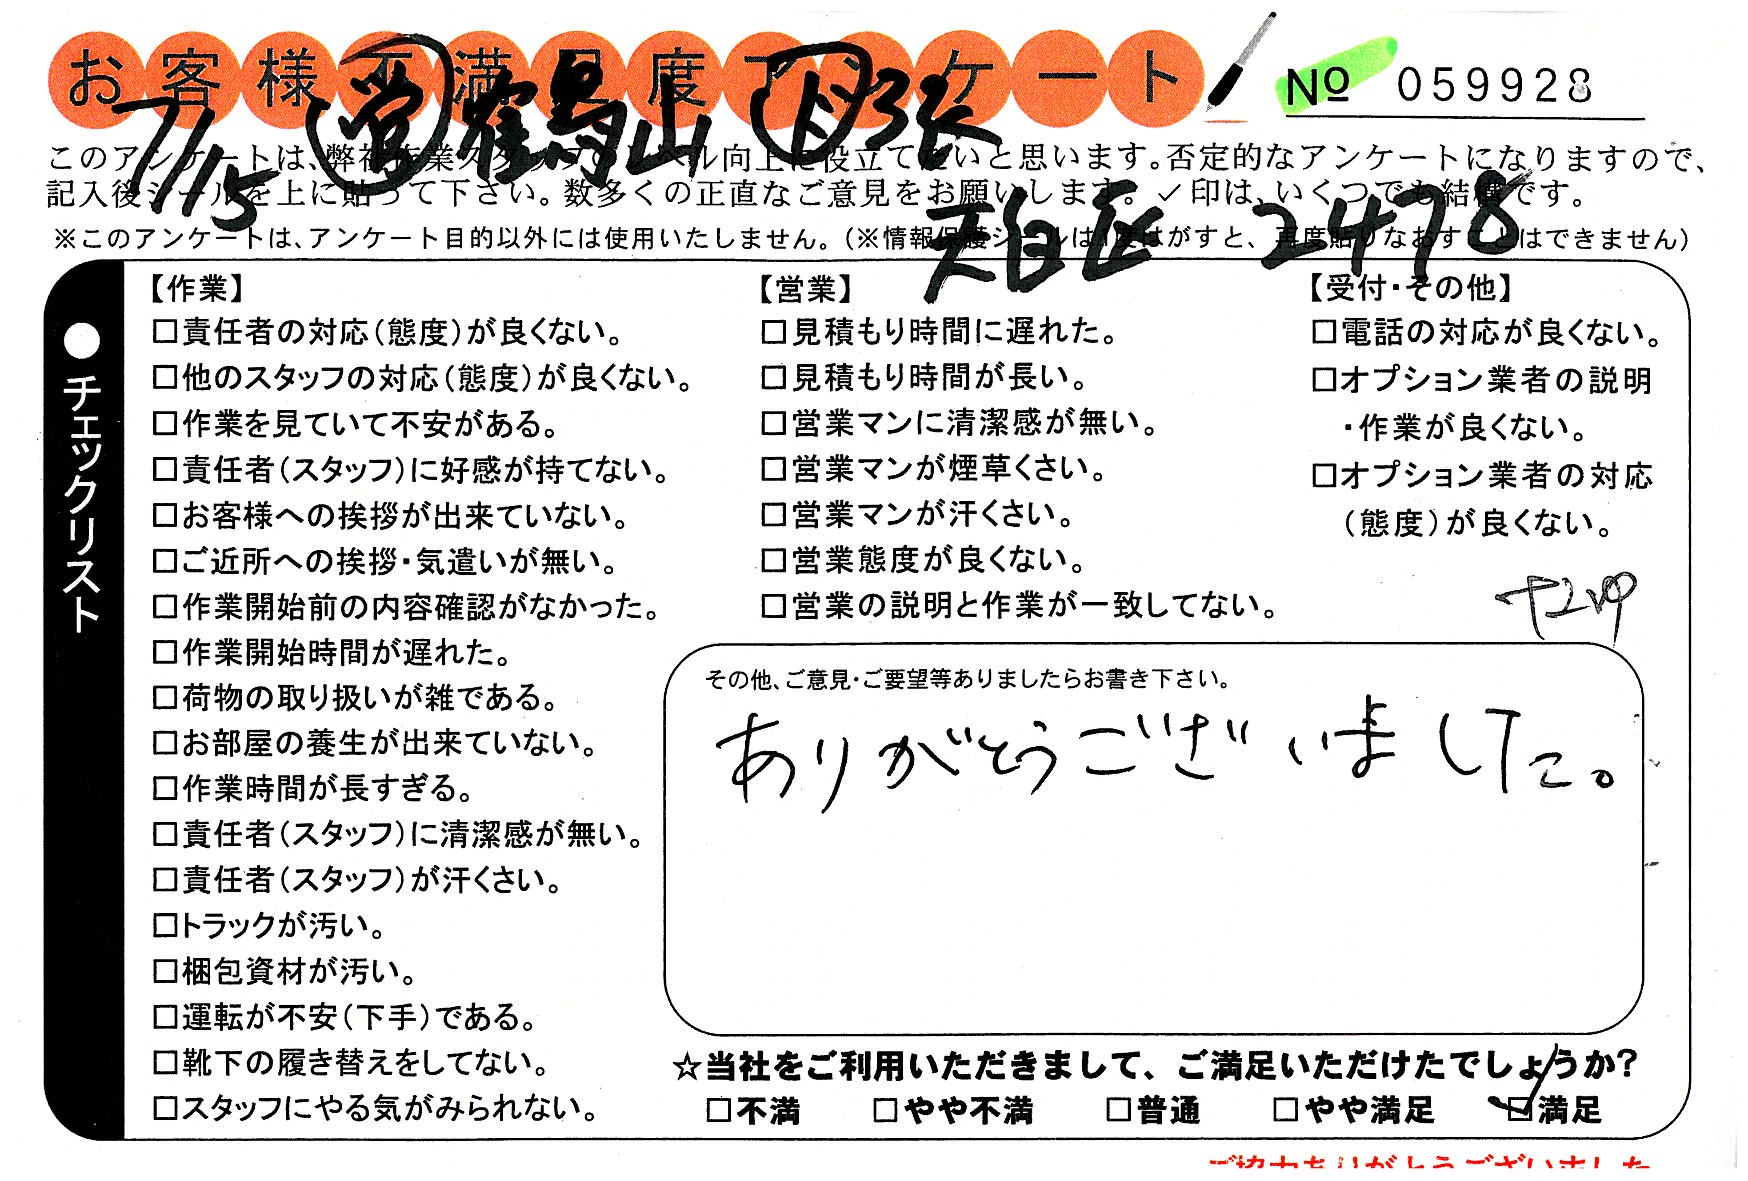 お客様不満足度アンケート
№ 059928
7/15 営 鶴山
天白区 2478
このアンケートは、弊社作業スタッフのレベル向上に役立てたいと思います。否定的なアンケートになりますので、
記入後シールを上に貼って下さい。数多くの正直なご意見をお願いします。✓印は、いくつでも結構です。
※このアンケートは、アンケート目的以外には使用いたしません。(※情報保護シールは1度はがすと、再度貼りなおすことはできません)
●チェックリスト
【作業】
□責任者の対応(態度)が良くない。
□他のスタッフの対応(態度)が良くない。
□作業を見ていて不安がある。
□責任者(スタッフ)に好感が持てない。
□お客様への挨拶が出来ていない。
□ご近所への挨拶・気遣いが無い。
□作業開始前の内容確認がなかった。
□作業開始時間が遅れた。
□荷物の取り扱いが雑である。
□お部屋の養生が出来ていない。
□作業時間が長すぎる。
□責任者(スタッフ)に清潔感が無い。
□責任者(スタッフ)が汗くさい。
□トラックが汚い。
□梱包資材が汚い。
□運転が不安(下手)である。
□靴下の履き替えをしてない。
□スタッフにやる気がみられない。
【営業】
□見積もり時間に遅れた。
□見積もり時間が長い。
□営業マンに清潔感が無い。
□営業マンが煙草くさい。
□営業マンが汗くさい。
□営業態度が良くない。
□営業の説明と作業が一致してない。
【受付・その他】
□電話の対応が良くない。
□オプション業者の説明
・作業が良くない。
□オプション業者の対応
(態度)が良くない。
その他、ご意見・ご要望等ありましたらお書き下さい。
ありがとうございました。
☆当社をご利用いただきまして、ご満足いただけたでしょうか?
□不満 □やや不満 □普通 □やや満足 ☑満足
ご協力ありがとうございました